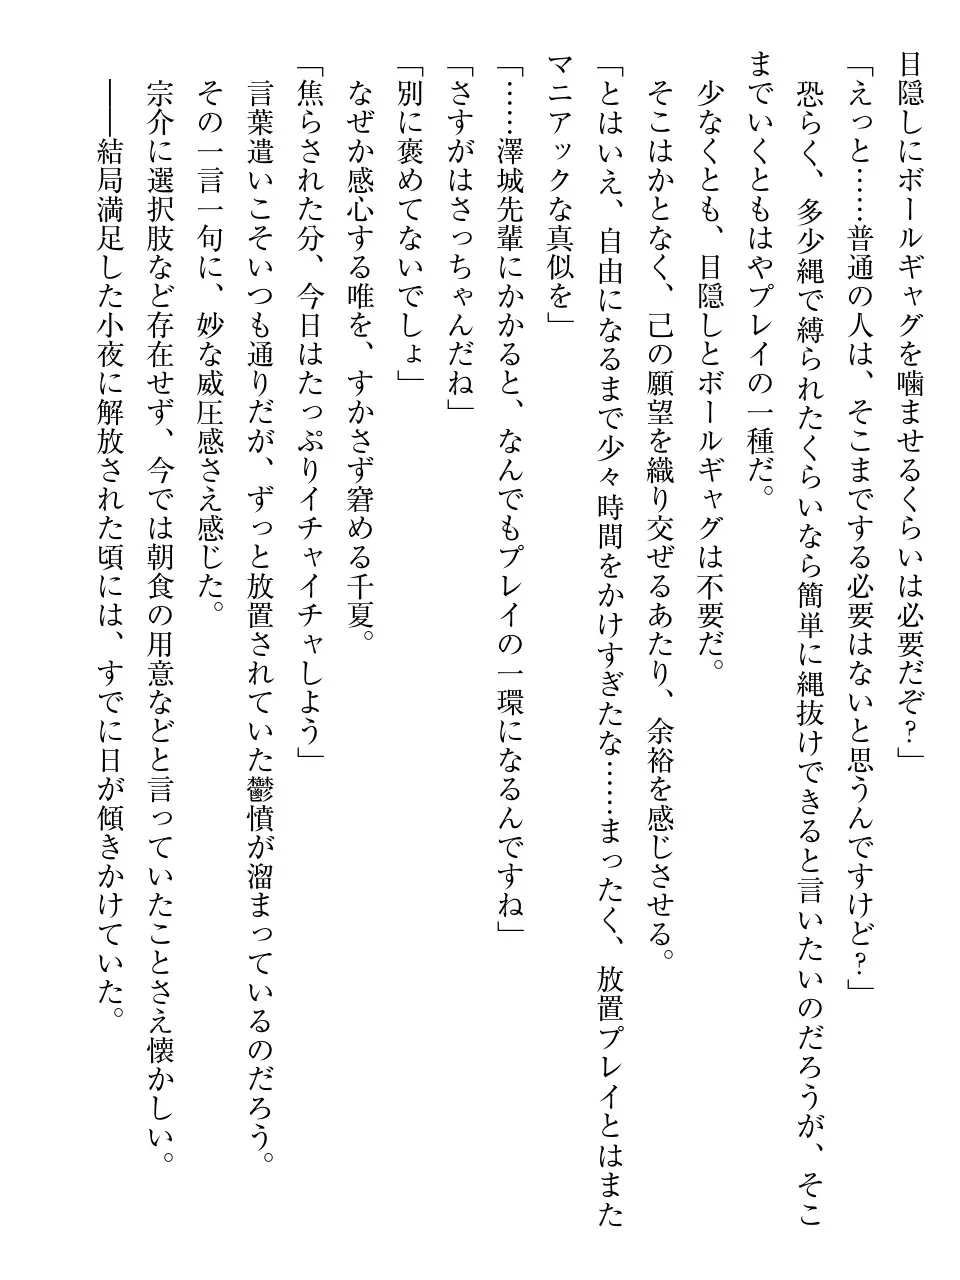 目隠しにボールギャグを噛ませるくらいは必要だぞ？」
「えっと……普通の人は、そこまでする必要はないと思うんですけど？」
恐らく、多少縄で縛られたくらいなら簡単に縄抜けできると言いたいのだろうが、そこ
までいくともはやプレイの一種だ。
少なくとも、目隠しとボールギャグは不要だ。
そこはかとなく、己の願望を織り交ぜるあたり、余裕を感じさせる。
「とはいえ、自由になるまで少々時間をかけすぎたな……まったく、放置プレイとはまた
マニアックな真似を」
「……澤城先輩にかかると、なんでもプレイの一環になるんですね」
「さすがはさっちゃんだね」
「別に褒めてないでしょ」
なぜか感心する唯を、すかさず窘める千夏。
「焦らされた分、今日はたっぷりイチャイチャしよう」
言葉遣いこそいつも通りだが、ずっと放置されていた鬱憤が溜まっているのだろう。
その一言一句に、妙な威圧感さえ感じた。
宗介に選択肢など存在せず、今では朝食の用意などと言っていたことさえ懐かしい。
――結局満足した小夜に解放された頃には、すでに日が傾きかけていた。